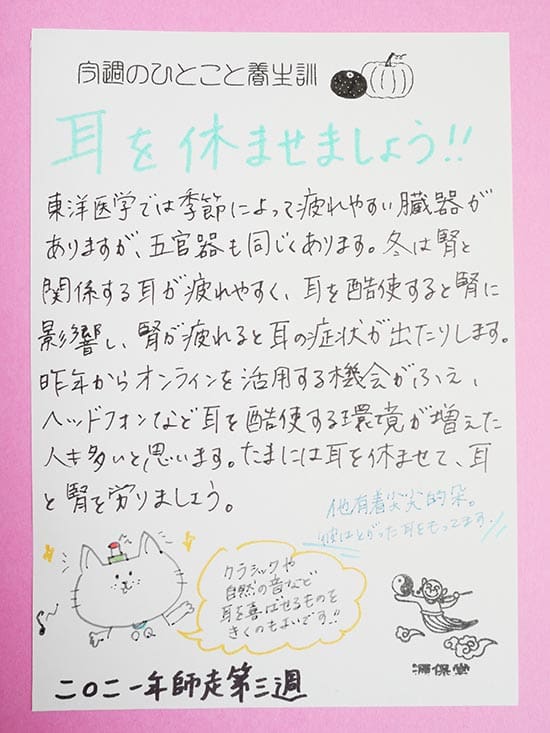 今週のひとこと養生訓
耳を休ませましょう!!
東洋医学では季節によって疲れやすい臓器が
ありますが、五官器も同じくあります。冬は腎と
関係する耳が疲れやすく、耳を酷使すると腎に
影響し、腎が疲れると耳の症状が出たりします。
昨年からオンラインを活用する機会がふえ、
ヘッドフォンなど耳を酷使する環境が増えた
人も多いと思います。たまには耳を休ませて、耳
と腎を労りましょう。
他有着尖尖的朵。
彼はとがった耳をもってます
クラシックや
自然の音など
耳を喜ばせるものを
きくのもよいです!!
源保堂
二〇二一年師走第三週